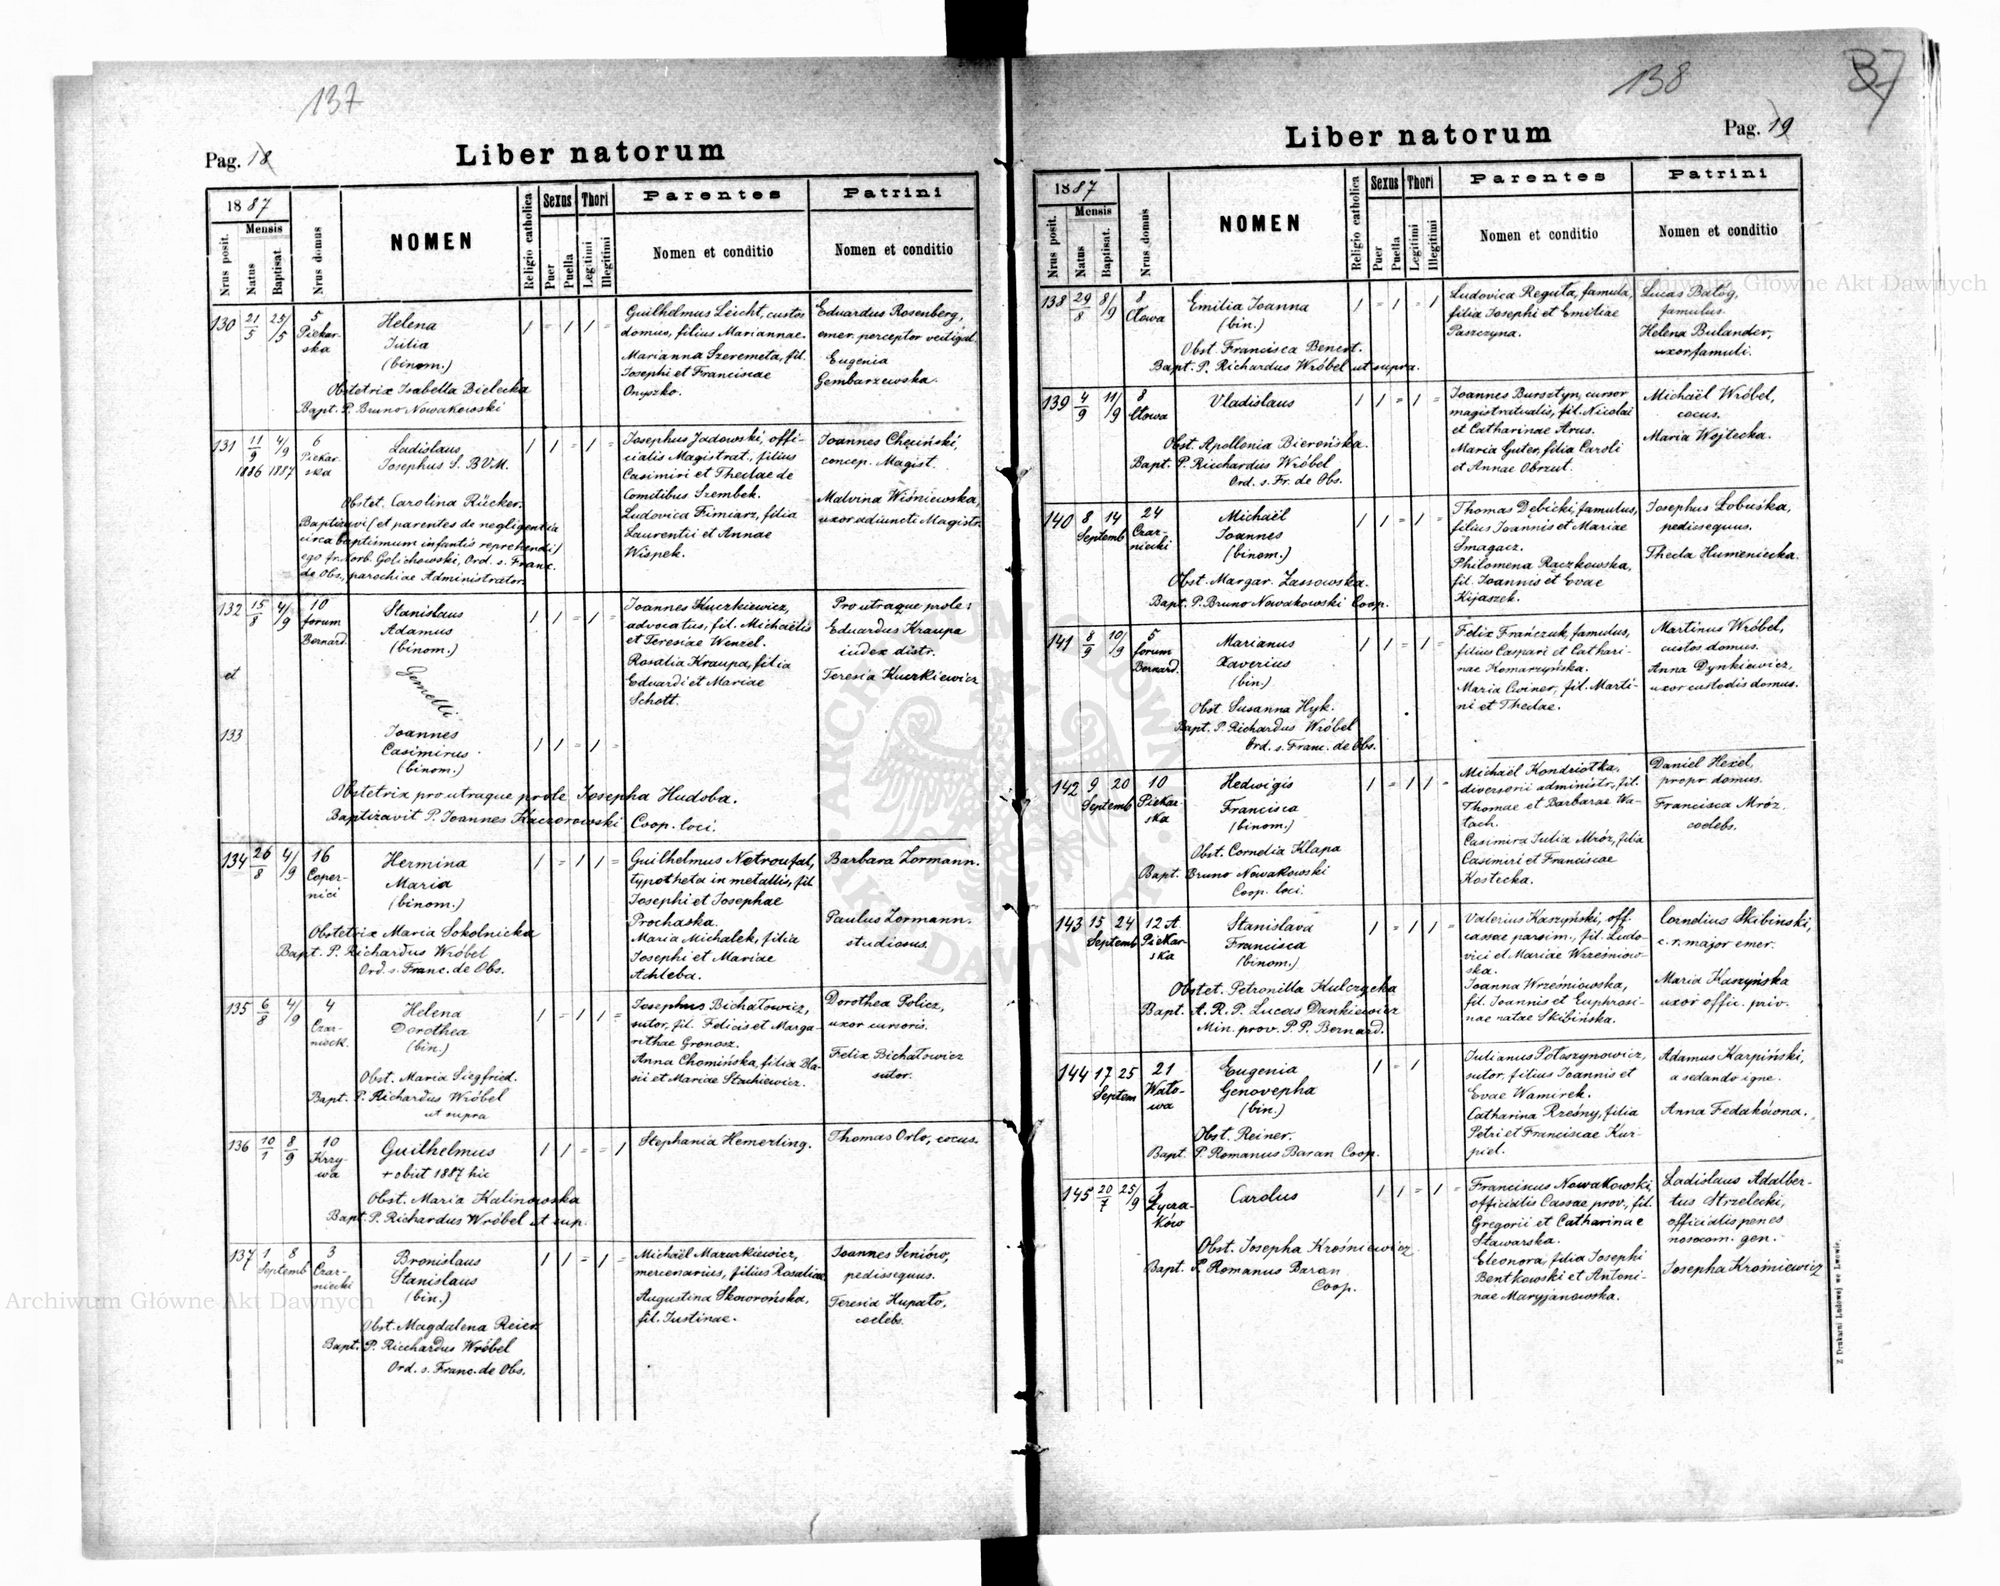 137
Pag. 18
Liber natorum
1887
Nrus posit.
Mensis
Natus
Baptisat.
Nrus domus
NOMEN
Religio catholica
Sexus
Puer
Puella
Thori
Legitimi
Illegitimi
Parentes
Nomen et conditio
Patrini
Nomen et conditio
130 21/5 25/5 5 Piekar-
ska
Helena
Julia
(binom.)
Obstetrix Isabella Bielecka
Bapt. P. Bruno Nowakowski
Guilhelmus Leicht, custos
domus, filius Mariannae.
Marianna Szeremeta, fil.
Josephi et Franciscae
Onyszko.
Eduardus Rosenberg,
emer. perceptor vectigal.
Eugenia
Gembarzewska.
131 11/9 4/9 6
1886 1887 Piekar-
ska
Ladislaus
Josephus S. BVM.
Obstet. Carolina Rücker.
Baptizavi (et parentes de negligentia
circa baptismum infantis reprehendi)
ego fr. Norb. Golichowski, Ord. s. Franc.
de Obs., parochiae Administrator.
Josephus Jadowski, offi-
cialis Magistrat., filius
Casimiri et Theclae de
Comitibus Szembek.
Ludovica Fimiarz, filia
Laurentii et Annae
Wispek.
Joannes Chęciński,
concep. Magist.
Malvina Wiśniewska,
uxor adiuncti Magistr.
132 15/8 4/9 10
forum
Bernard.
et
133
Stanislaus
Adamus
(binom.)
Gemelli
Joannes
Casimirus
(binom.)
Obstetrix pro utraque prole Josepha Hudoba.
Baptizavit P. Joannes Kaczorowski Coop. loci.
Joannes Kuczkiewicz,
advocatus, fil. Michaëlis
et Teresiae Wenzel.
Rosalia Kraupa, filia
Eduardi et Mariae
Schott.
Pro utraque prole:
Eduardus Kraupa
iudex distr.
Teresia Kuczkiewicz
134 26/8 4/9 16
Coper-
nici
Hermina
Maria
(binom.)
Obstetrix Maria Sokolnicka
Bapt. P. Richardus Wróbel
Ord. s. Franc. de Obs.
Guilhelmus Netroufal,
typotheta in metallis, fil.
Josephi et Josephae
Prochaska.
Maria Michalek, filia
Josephi et Mariae
Achleba.
Barbara Zormann.
Paulus Zormann.
studiosus.
135 6/8 4/9 4
Czar-
nieck.
Helena
Dorothea
(bin.)
Obst. Maria Siegfried.
Bapt. P. Richardus Wróbel
ut supra
Josephus Bichałowicz,
sutor, fil. Felicis et Marga-
rithae Gronosz.
Anna Chomińska, filia Bla-
sii et Mariae Stachiewicz.
Dorothea Policz,
uxor cursoris.
Felix Bichałowicz
sutor.
136 10/1 8/9 10
Krzy-
wa
Guilhelmus
+ obiit 1887 hic
Obst. Maria Kalinowska
Bapt. P. Richardus Wróbel ut sup.
Stephania Hemerling.
Thomas Orlo, cocus.
137 1 8 3
Septemb. Czar-
niecki
Bronislaus
Stanislaus
(bin.)
Obst. Magdalena Reier
Bapt. P. Ricchardus Wróbel
Ord. s. Franc. de Obs.
Michaël Mazurkiewicz,
mercenarius, filius Rosaliae
Augustina Skowrońska,
fil. Justinae.
Joannes Seniów,
pedissequus.
Teresia Hupało,
coelebs.
138
37
Pag. 19
Liber natorum
1887
Nrus posit.
Mensis
Natus
Baptisat.
Nrus domus
NOMEN
Religio catholica
Sexus
Puer
Puella
Thori
Legitimi
Illegitimi
Parentes
Nomen et conditio
Patrini
Nomen et conditio
138 29/8 8/9 8
Cłowa
Emilia Joanna
(bin.)
Obst. Francisca Benert.
Bapt. P. Richardus Wróbel ut supra.
Ludovica Reguła, famula,
filia Josephi et Emiliae
Paszczyna.
Lucas Batóg,
famulus.
Helena Bulander,
uxor famuli.
139 4/9 11/9 8
Cłowa
Vladislaus
Obst. Apollonia Bierońska.
Bapt. P. Ricchardus Wróbel
Ord. s. Fr. de Obs.
Joannes Bursztyn, cursor
magistratualis, fil. Nicolai
et Catharinae Arus.
Maria Guter, filia Caroli
et Annae Obrzut.
Michaël Wróbel,
cocus.
Maria Wojtecka.
140 8 14 24
Septemb Czar-
niecki
Michaël
Joannes
(binom.)
Obst. Margar. Zassowska.
Bapt. P. Bruno Nowakowski Coop.
Thomas Dębicki, famulus,
filius Joannis et Mariae
Smagacz.
Philomena Raczkowska,
fil. Joannis et Evae
Kijaszek.
Josephus Łobuśka,
pedissequus.
Thecla Humeniecka.
141 8/9 10/9 5
forum
Bernard.
Marianus
Xaverius
(bin.)
Obst. Susanna Hyk.
Bapt. P. Richardus Wróbel
Ord. s. Franc. de Obs.
Felix Frańczuk, famulus,
filius Caspari et Cathari-
nae Komarzyńska.
Maria Cwiner, fil. Marti-
ni et Theclae.
Martinus Wróbel,
custos domus.
Anna Dynkiewicz,
uxor custodis domus.
142 9 20 10
Septemb Piekar-
ska
Hedwigis
Francisca
(binom.)
Obst. Cornelia Klapa
Bapt. Bruno Nowakowski
Coop. loci.
Michaël Kondriotka,
diversorii administr., fil.
Thomae et Barbarae Wa-
tach.
Casimira Julia Mróz, filia
Casimiri et Franciscae
Kostecka.
Daniel Hexel,
propr. domus.
Francisca Mróz.
coelebs.
143 15 24 12 A.
Septemb Piekar-
ska
Stanislava
Francisca
(binom.)
Obstet. Petronilla Kulczycka
Bapt. A. R. P. Lucas Dankiewicz
Min. prov. P. P. Bernard.
Valerius Kaszyński, off.
cassae parsim., fil. Ludo-
vici et Mariae Wrześniow-
ska.
Joanna Wrześniowska,
fil. Joannis et Euphrosi-
nae natae Skibińska.
Cornelius Skibinski,
c. r. major emer.
Maria Kaszyńska
uxor offic. priv.
144 17 25 21
Septem Wało-
wa
Eugenia
Genovepha
(bin.)
Obst. Reiner.
Bapt. P. Romanus Baran Coop.
Julianus Potoszynowicz,
sutor, filius Joannis et
Evae Wamirek.
Catharina Rześny, filia
Petri et Franciscae Kur-
piel.
Adamus Karpiński,
a sedando igne.
Anna Fedakówna.
145 20/7 25/9 1
Łycza-
ków
Carolus
Obst. Josepha Krośniewicz
Bapt. P. Romanus Baran
Coop.
Franciscus Nowakowski,
officialis Cassae prov., fil.
Gregorii et Catharinae
Stawarska.
Eleonora, filia Josephi
Bentkowski et Antoni-
nae Maryjanowska.
Ladislaus Adalber-
tus Strzelecki,
officialis penes
nosocom. gen.
Josepha Krośniewicz
Z Drukarni Ludowej we Lwowie.
Archiwum Główne Akt Dawnych
Archiwum Główne Akt Dawnych